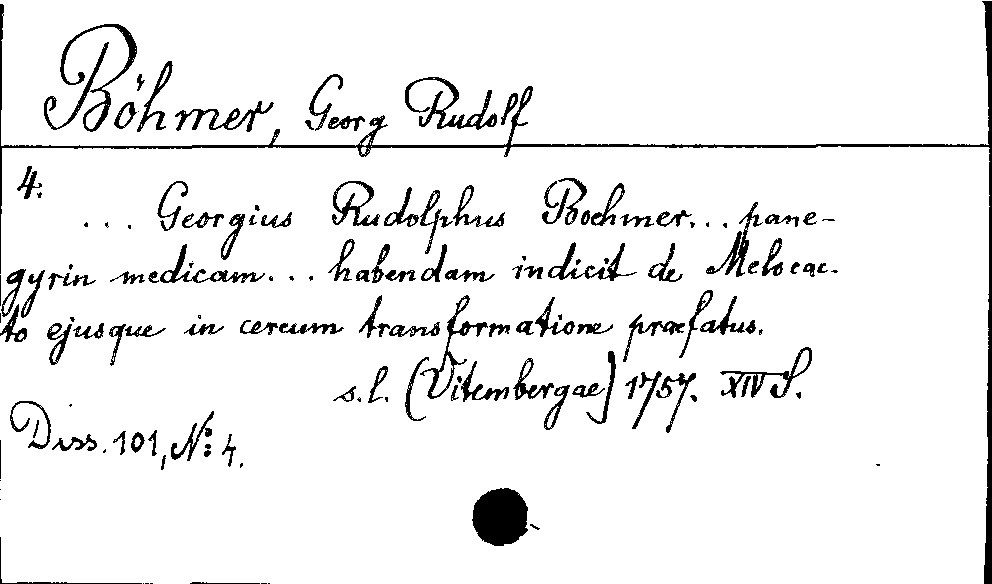 Böhmer, Georg Rudolf
4.
... Georgius Rudolphus Boehmer... pane-
gyrin medicam... habendam indicit de Melocac-
to ejusque in cereum transformatione præfatus.
s.l. (Vitembergae) 1757. XIV S.
Diss. 101, No: 4.